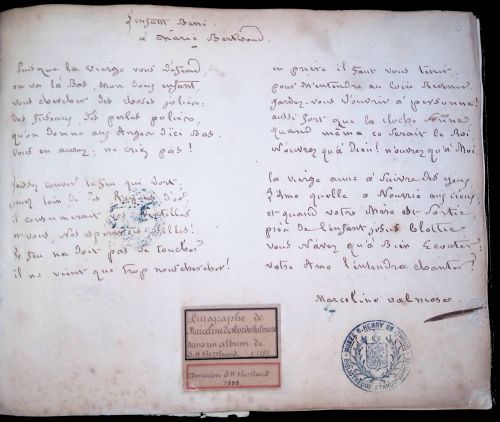 L'enfant Beni
à Marie Bertrand.
Puisque la vierge vous défend,
on va là Bas, Mon doux enfant,
vous chercher des choses jolies:
des Rubans, des perles polies,
qu'on donne aux Anges d'ici Bas.
vous en aurez; ne criez pas!
Laissez couver le feu qui dort;
loin de ses Rayons d'or;
il consumerait vos dentelles
et vous, Nos espérances Belles!
le feu ne doit pas se toucher
il ne vient que trop nous chercher!
en prière il faut vous tenir,
pour m'entendre au loin Revenir.
Gardez-vous d'ouvrir à personne!
aussi fort que la cloche sonne
quand même ce serait le Roi
N'ouvrez qu'à Dieu! n'ouvrez qu'à Moi.
la vierge aime à suivre des yeux
l'Ame qu'elle a Nourrie aux cieux;
et quand votre Mère est sortie
près de l'enfant jésus blottie
vous N'avez qu'à Bien Ecouter:
votre Ame l'entendra chanter!
Marceline valmore.
Autographe de
Marceline Desbordes Valmore
dans un album de
J. H Bertrand
Donation J. H Bertrand